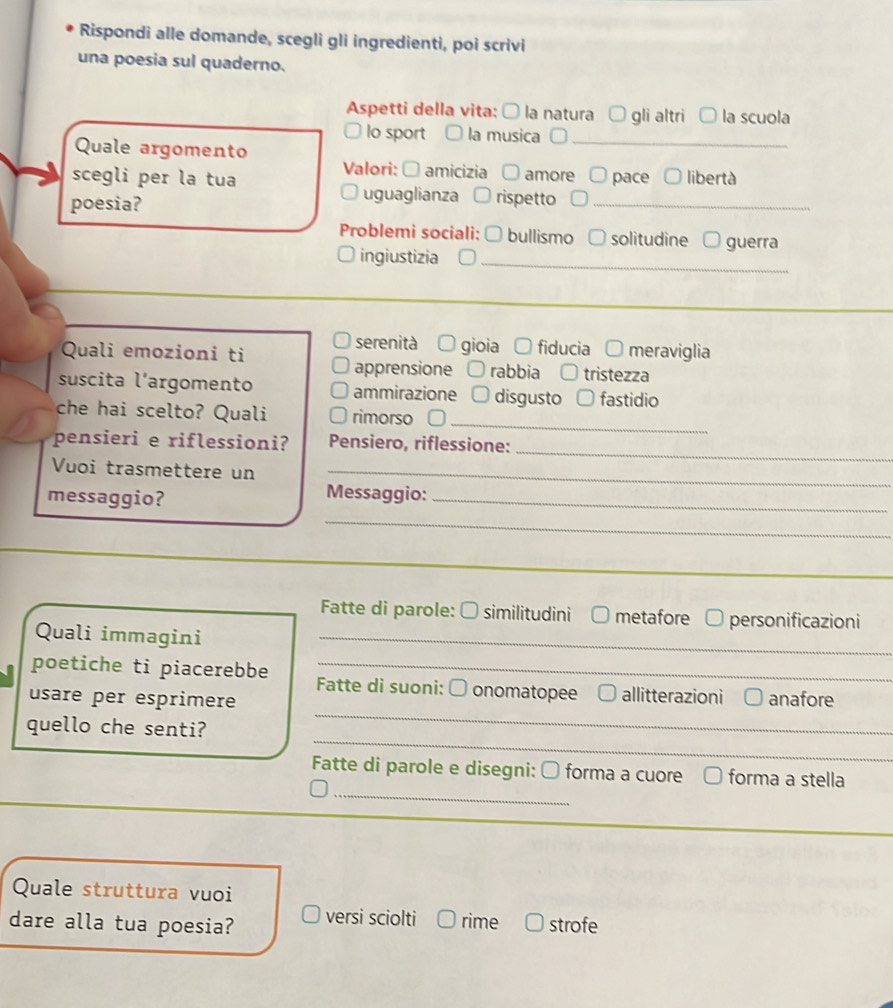 • Rispondi alle domande, scegli gli ingredienti, poi scrivi
una poesia sul quaderno.
Quale argomento
scegli per la tua
poesia?
Aspetti della vita: ▢ la natura ▢ gli altri ▢ la scuola
▢ lo sport ▢ la musica ▢ ____________
Valori: ▢ amicizia ▢ amore ▢ pace ▢ libertà
▢ uguaglianza ▢ rispetto ▢ ____________
Problemi sociali: ▢ bullismo ▢ solitudine ▢ guerra
▢ ingiustizia ▢ ____________
Quali emozioni ti
suscita l'argomento
che hai scelto? Quali
pensieri e riflessioni?
Vuoi trasmettere un
messaggio?
▢ serenità ▢ gioia ▢ fiducia ▢ meraviglia
▢ apprensione ▢ rabbia ▢ tristezza
▢ ammirazione ▢ disgusto ▢ fastidio
▢ rimorso ▢ ____________
Pensiero, riflessione: ____________
Messaggio: ____________
Quali immagini
poetiche ti piacerebbe
usare per esprimere
quello che senti?
Fatte di parole: ▢ similitudini ▢ metafore ▢ personificazioni
Fatte di suoni: ▢ onomatopee ▢ allitterazioni ▢ anafore
Fatte di parole e disegni: ▢ forma a cuore ▢ forma a stella
▢ ____________
Quale struttura vuoi
dare alla tua poesia?
▢ versi sciolti ▢ rime ▢ strofe